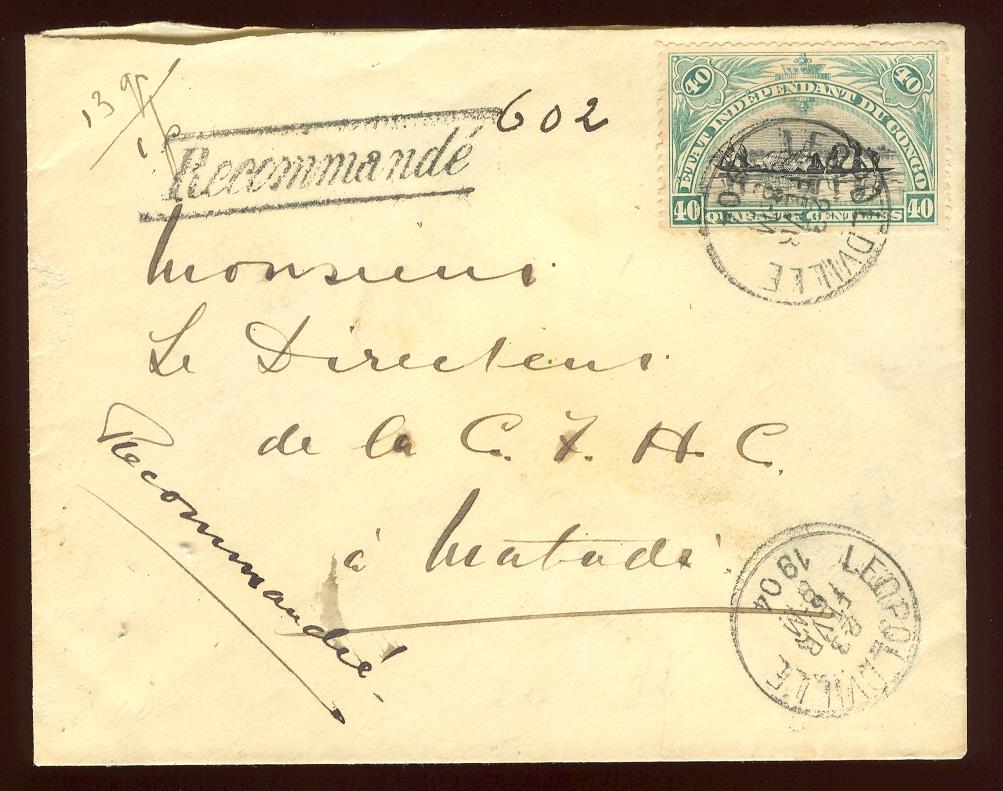 13 9
602
Recommandé
40 40
ETAT INDEPENDANT DU CONGO
40 QUARANTE CENTIMES 40
LEOPOLDVILLE
Monsieur
Le Directeur
de la C. F. H. C.
à Matadi
Recommandé
LEOPOLDVILLE
23
AVR
8-M
1904